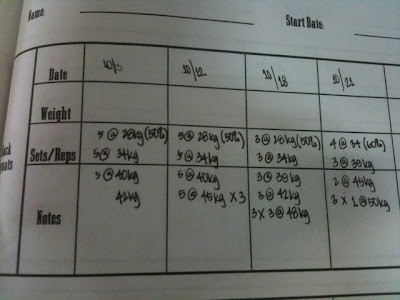 Name:
Start Date:
Date 10/5 10/12 10/18 10/21
Weight
Sets/Reps
5 @ 28kg (50%) 5 @ 28kg (50%) 3 @ 28kg (50%) 4 @ 34 (60%)
5 @ 34kg 5 @ 34kg 3 @ 34kg 3 @ 39kg
Notes
5 @ 40kg 5 @ 40kg 3 @ 39kg 2 @ 45kg
42kg 5 @ 45kg x3 3 @ 42kg 3 x 1 @ 50kg
3 x 3 @ 48kg